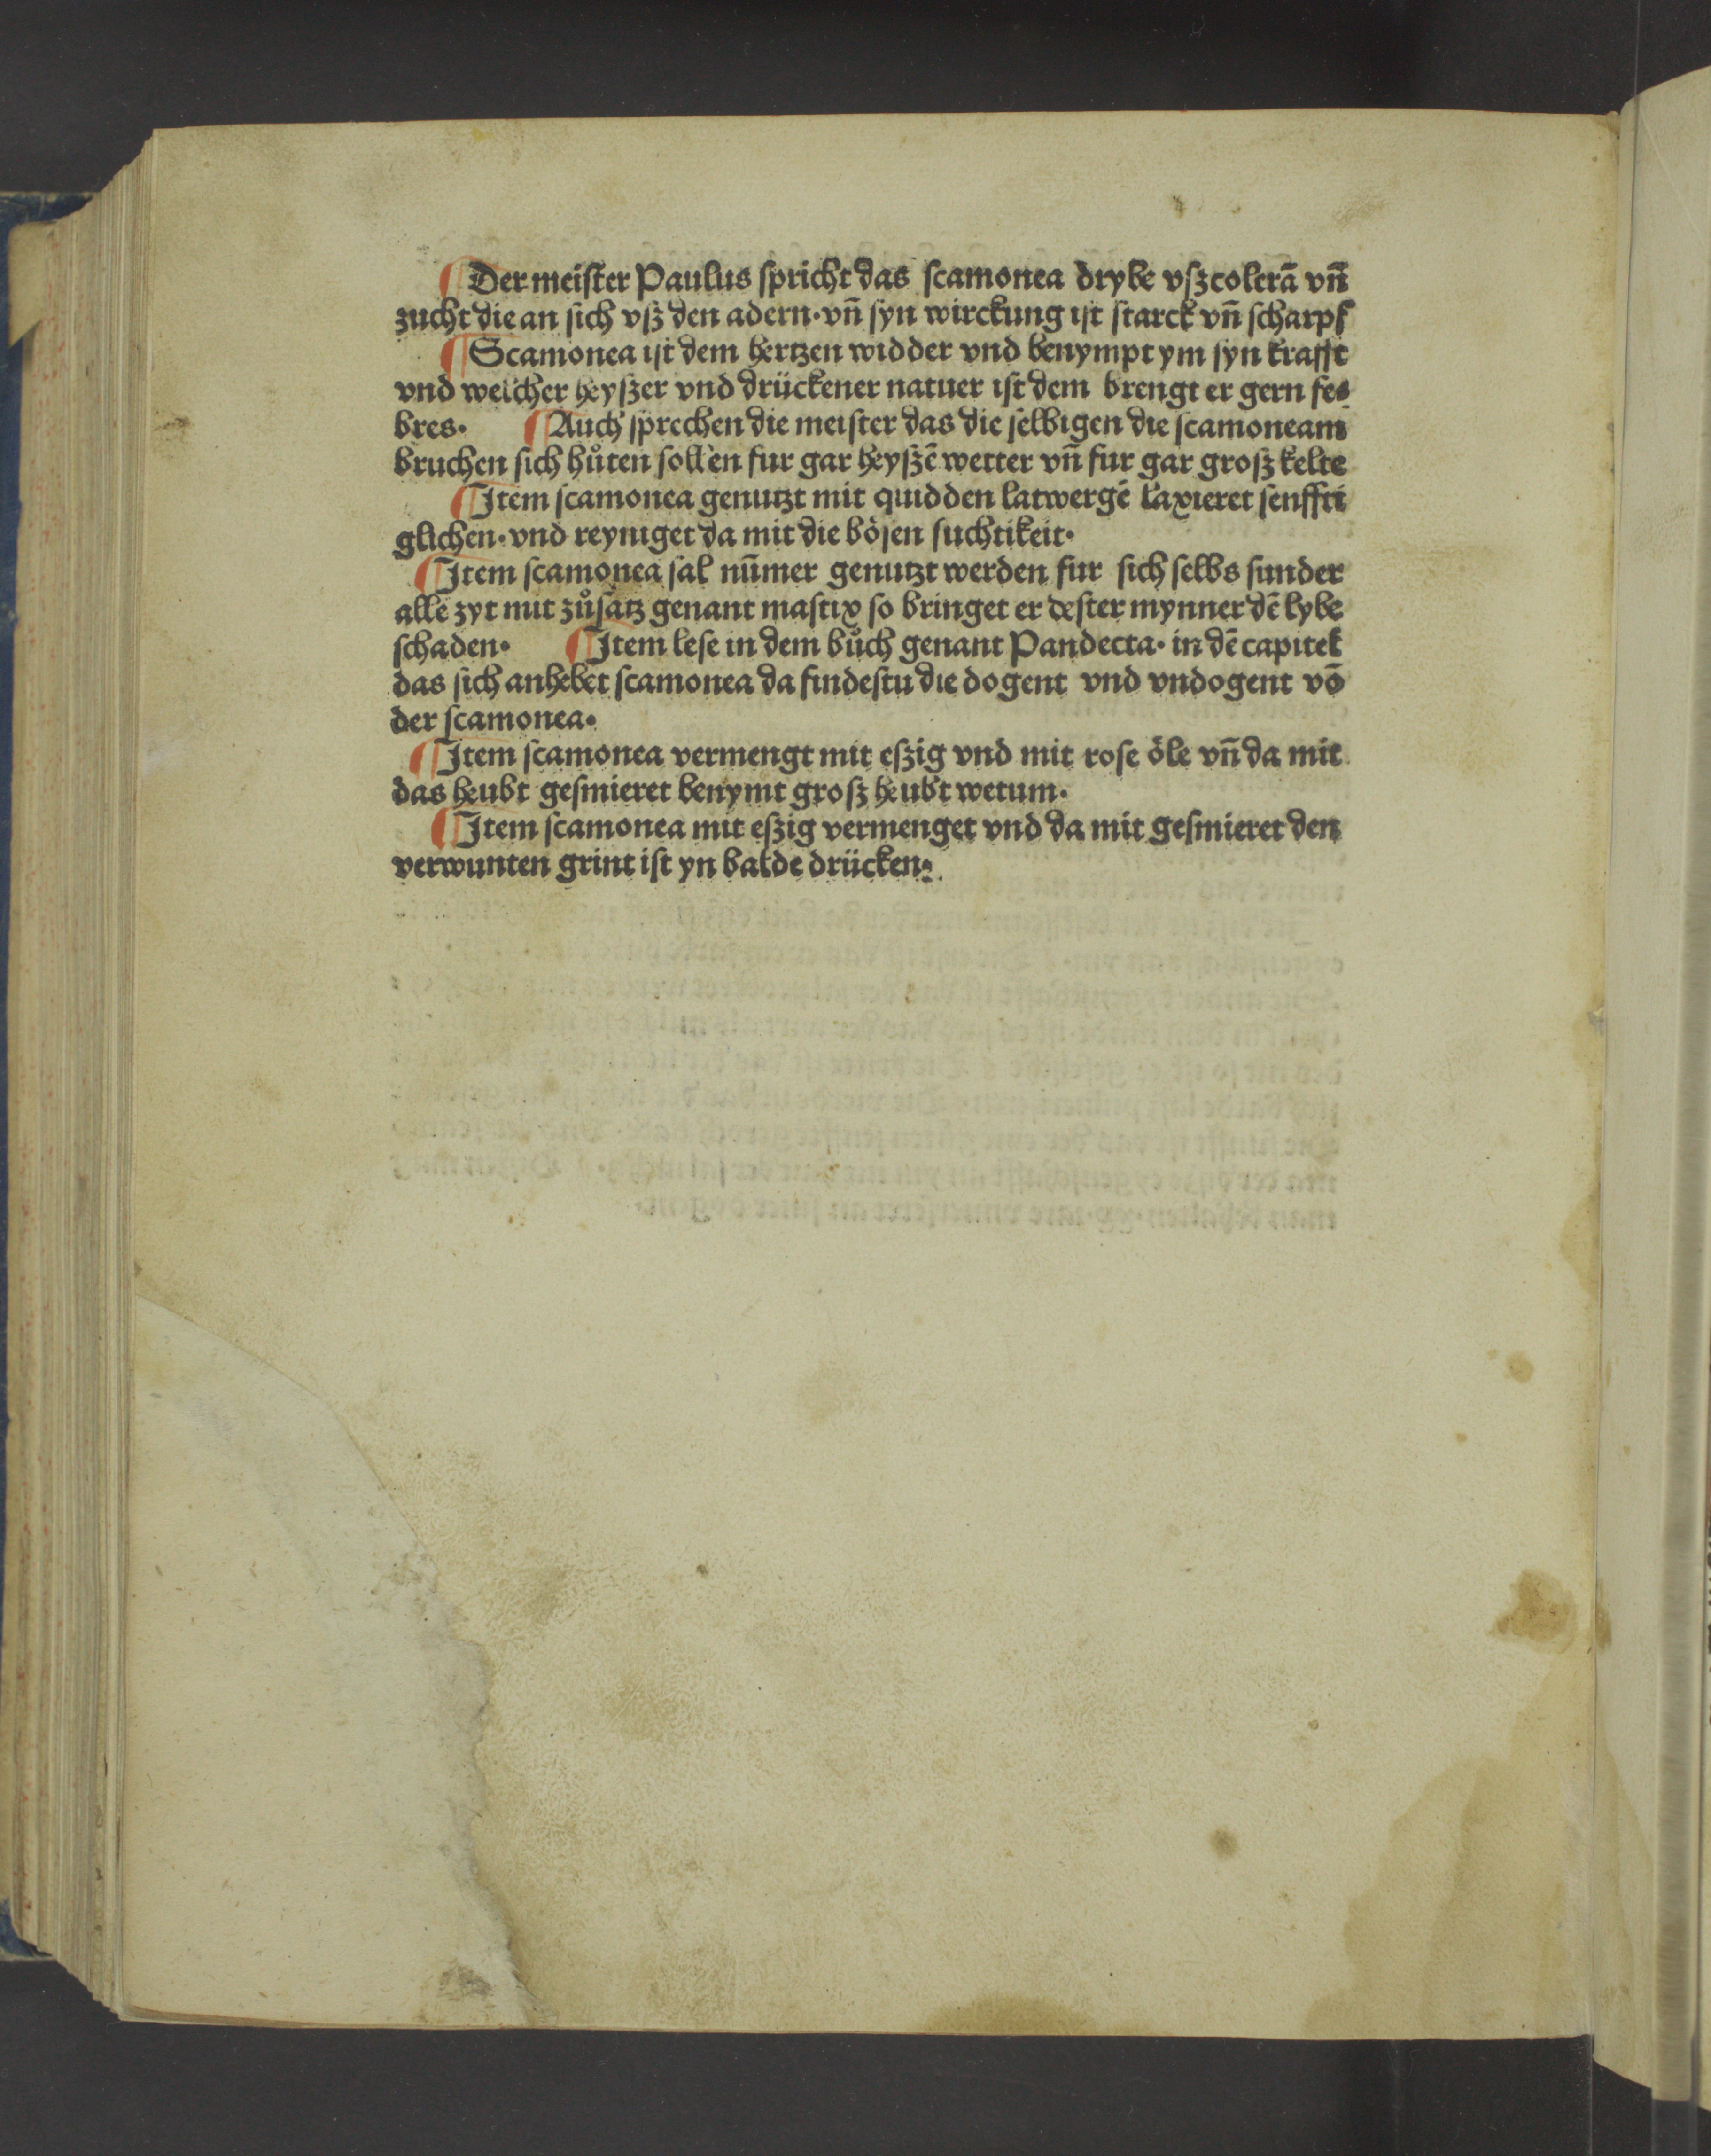 ¶ Der meiſter Paulus ſpricht das ſcamonea drybe vſz colerã vñ
zucht die an ſich vſz den adern· vñ ſyn wirckung iſt ſtarck vñ ſcharpf
¶ Scamonea iſt dem hertzen widder vnd benympt ym ſyn krafft
vnd welcher heyſzer vnd drückener natuer iſt dem brengt er gern fe⸗
bres· ¶ Auch ſprechen die meiſter das die ſelbigen die ſcamoneam
bruchen ſich hůten ſollen fur gar heyſzẽ wetter vñ fur gar groſz kelte
¶ Item ſcamonea genutzt mit quidden latwergẽ laxieret ſenffti
glichen· vnd reyniget da mit die böſen fuchtikeit·
¶ Item ſcamonea ſal nũmer genutzt werden fur ſich ſelbs ſunder
alle zyt mit zůſatz genant maſtix ſo bringet er deſter mynner dẽ lybe
ſchaden· ¶ Item leſe in dem bůch genant Pandecta· in dẽ capitel
das ſich anhebet ſcamonea da findeſtu die dogent vnd vndogent võ
der ſcamonea·
¶ Item ſcamonea vermengt mit eſzig vnd mit roſe öle vñ da mit
das heubt geſmieret benymt groſz heubt wetum·
¶ Item ſcamonea mit eſzig vermenget vnd da mit geſmieret den
verwunten grint iſt yn balde drücken·